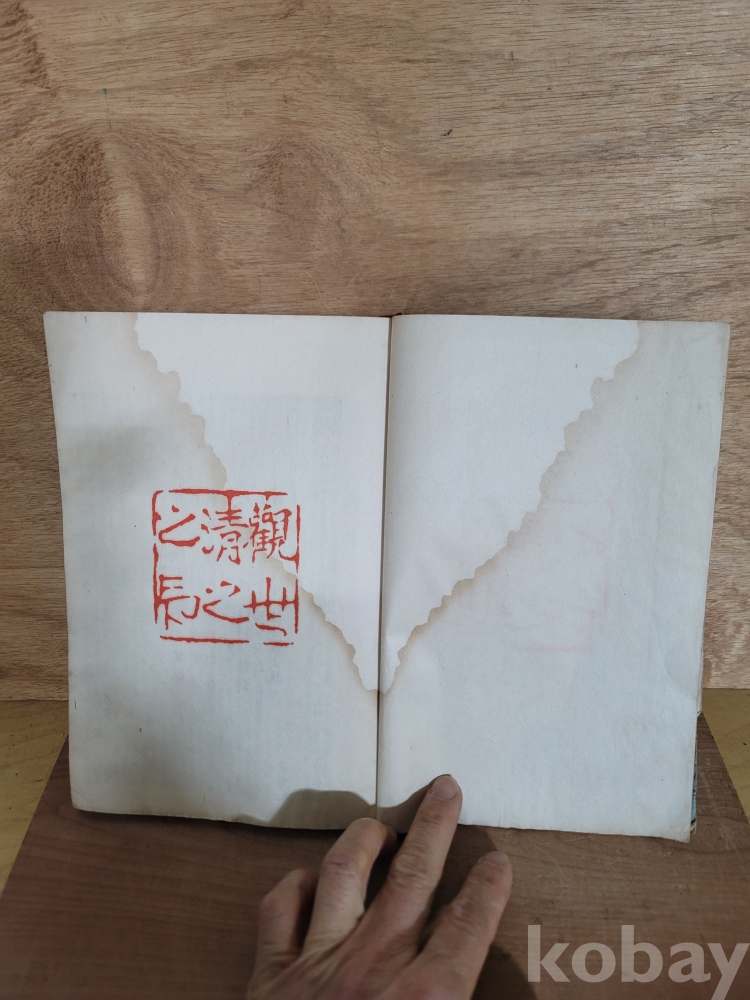 觀世
清之
之印
kobay